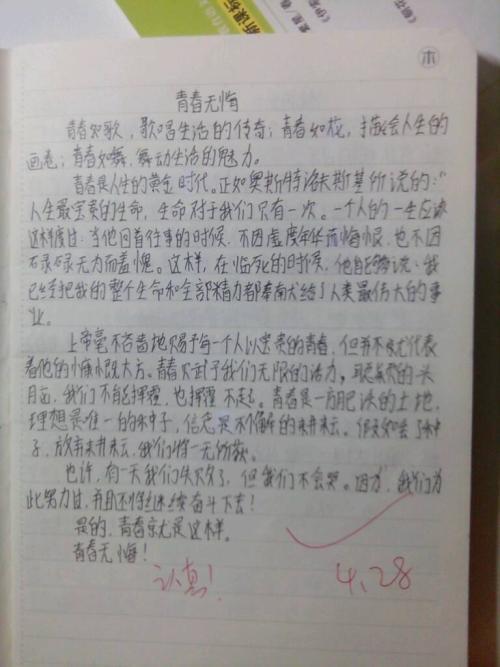 新课标
木
青春无悔
青春如歌，歌唱生活的传奇；青春如花，描绘人生的
画卷；青春如舞，舞动生活的魅力。
青春是人生的黄金时代。正如奥斯特洛夫斯基所说的："
人生最宝贵的生命，生命对于我们只有一次。一个人的一生应该
这样度过：当他回首往事的时候，不因虚度年华而悔恨，也不因
碌碌无为而羞愧。这样，在临死的时候，他能够说：我
已经把我的整个生命和全部精力都奉献给了人类最伟大的事
业。
上帝毫不吝啬地赐予每一个人以宝贵的青春，但并不就代表
着他的慷慨大方。青春赋予了我们无限的活力，聪慧的头
脑，我们不能挥霍，也挥霍不起。青春是一方肥沃的土地，
理想是唯一的种子，信念是不懈的耕耘。假如丢了种
子，放弃耕耘，我们将一无所获。
也许，有一天我们失败了，但我们不会哭。因为，我们为
此努力过，并且还将继续奋斗下去！
是的，青春就是这样。
青春无悔！
认真！
4.28